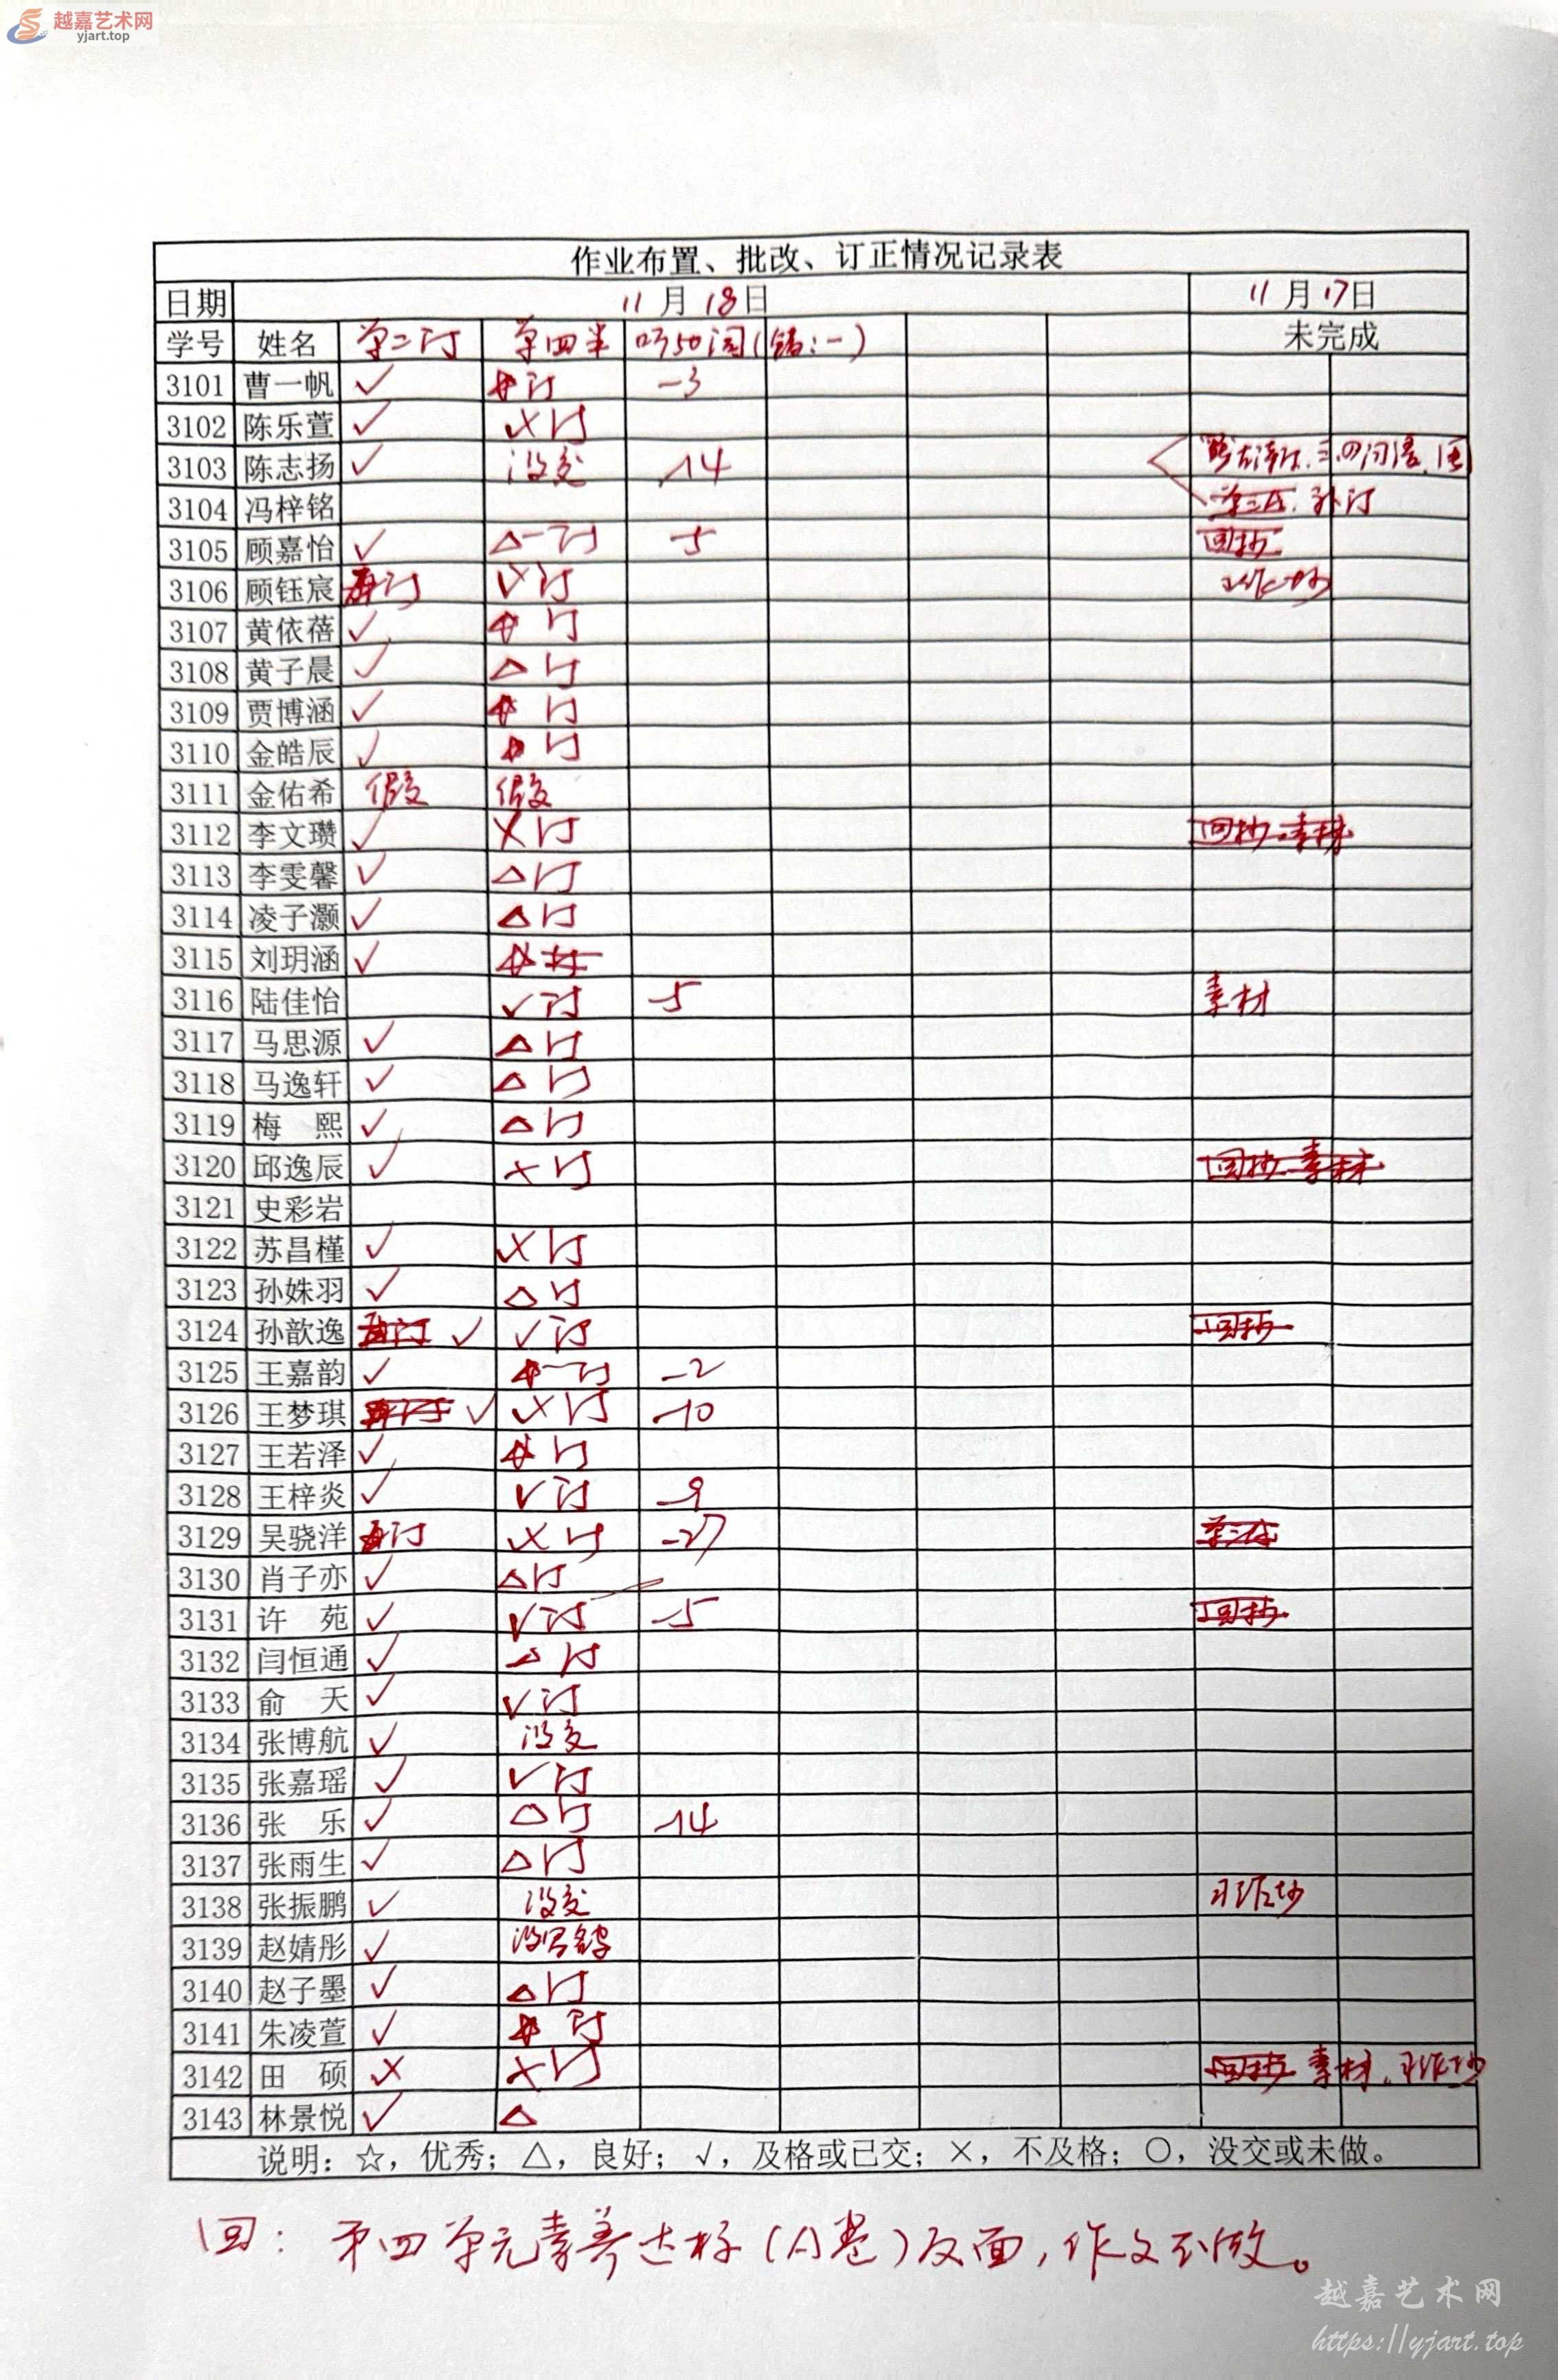 越嘉艺术网
yjart.top
作业布置、批改、订正情况记录表
日期 11月18日 11月17日
学号 姓名 单二订 单四半 听50词(错:-) 未完成
3101 曹一帆 ✓ ☆订 -3
3102 陈乐萱 ✓ ×订
3103 陈志扬 ✓ 没交 -14 三.四词语.
3104 冯梓铭 补订
3105 顾嘉怡 ✓ △订 -5 回抄
3106 顾钰宸 再订 ×订
3107 黄依蓓 ✓ ☆订
3108 黄子晨 ✓ △订
3109 贾博涵 ✓ ☆订
3110 金皓辰 ✓ ☆订
3111 金佑希 假交 假交
3112 李文瓒 ✓ ×订 回抄.素材
3113 李雯馨 ✓ △订
3114 凌子灏 ✓ △订
3115 刘玥涵 ✓ ☆
3116 陆佳怡 ✓订 -5 素材
3117 马思源 ✓ △订
3118 马逸轩 ✓ △订
3119 梅熙 ✓ △订
3120 邱逸辰 ✓ ×订 回抄.素材
3121 史彩岩
3122 苏昌槿 ✓ ×订
3123 孙姝羽 ✓ △订
3124 孙歆逸 再订 ✓ ✓订 回抄
3125 王嘉韵 ✓ ☆订 -2
3126 王梦琪 再订 ✓ ×订 -10
3127 王若泽 ✓ ☆订
3128 王梓炎 ✓ ✓订 -9
3129 吴骁洋 再订 ×订 -27
3130 肖子亦 ✓ △订
3131 许苑 ✓ ✓订 -5 回抄
3132 闫恒通 ✓ △订
3133 俞天 ✓ ✓订
3134 张博航 ✓ 没交
3135 张嘉瑶 ✓ ✓订
3136 张乐 ✓ △订 -14
3137 张雨生 ✓ △订
3138 张振鹏 ✓ 没交 习作抄
3139 赵婧彤 ✓ 没写名字
3140 赵子墨 ✓ △订
3141 朱凌萱 ✓ ☆订
3142 田硕 × ×订 回抄 素材.习作抄
3143 林景悦 ✓ △
说明：☆，优秀；△，良好；√，及格或已交；×，不及格；○，没交或未做。
回：第四单元素养达标(A卷)反面，作文不做。
越嘉艺术网
https://yjart.top